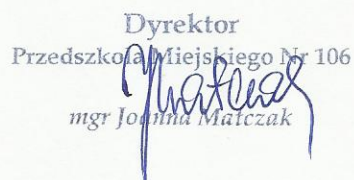 Dyrektor
Przedszkola Miejskiego Nr 106
mgr Joanna Matczak